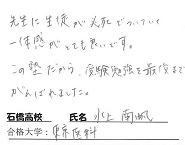 先生に生徒が必死でついていて
一体感がとても良いです。
この塾だから、受験勉強を最後まで
がんばれました。
石橋高校 氏名 水上 南帆
合格大学: 東京医科